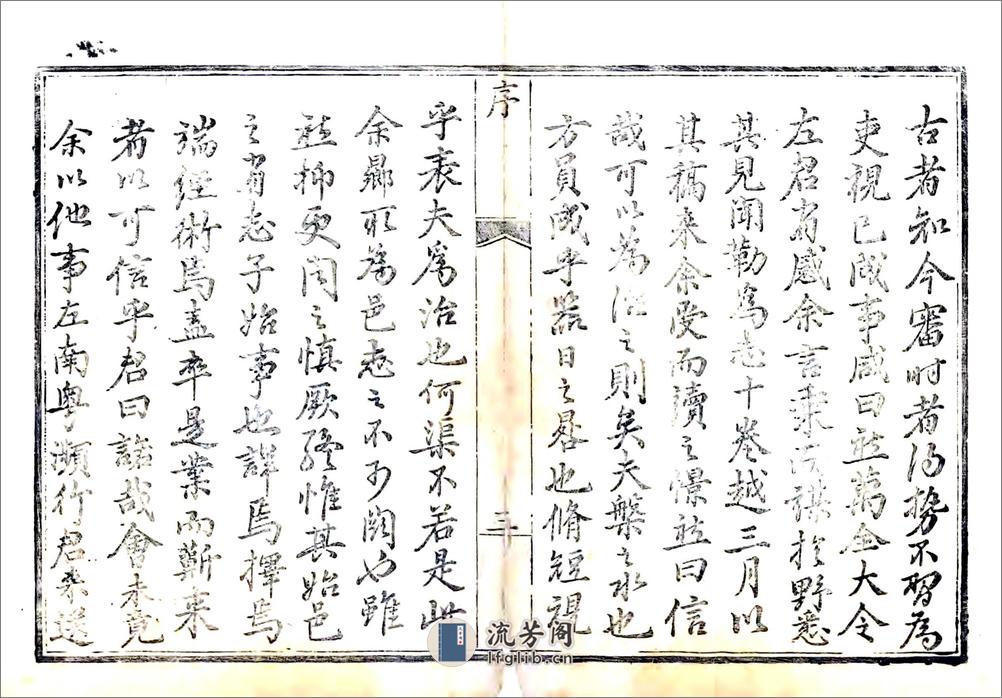 古者知今審時者得勢不習為
吏視已成事咸曰祗萬全大令
左君有感余言秉謀於野悉
其見聞勒為志十卷越三月以
其稿来余受而讀之憬然曰信
哉可以為治之則矣夫槃之水也
方員成乎器日之晷也脩短視
序
三
乎表夫為治也何渠不若是此
余鼎所為邑志之不可闕也雖
然抑更聞之慎厥終惟其始邑
之有志子始事也詳焉擇焉
端經術焉盍率是業而蘄来
者以可信乎君曰諾哉會未竟
余以他事左南粤瀕行君来送
流芳阁
lfglib.cn